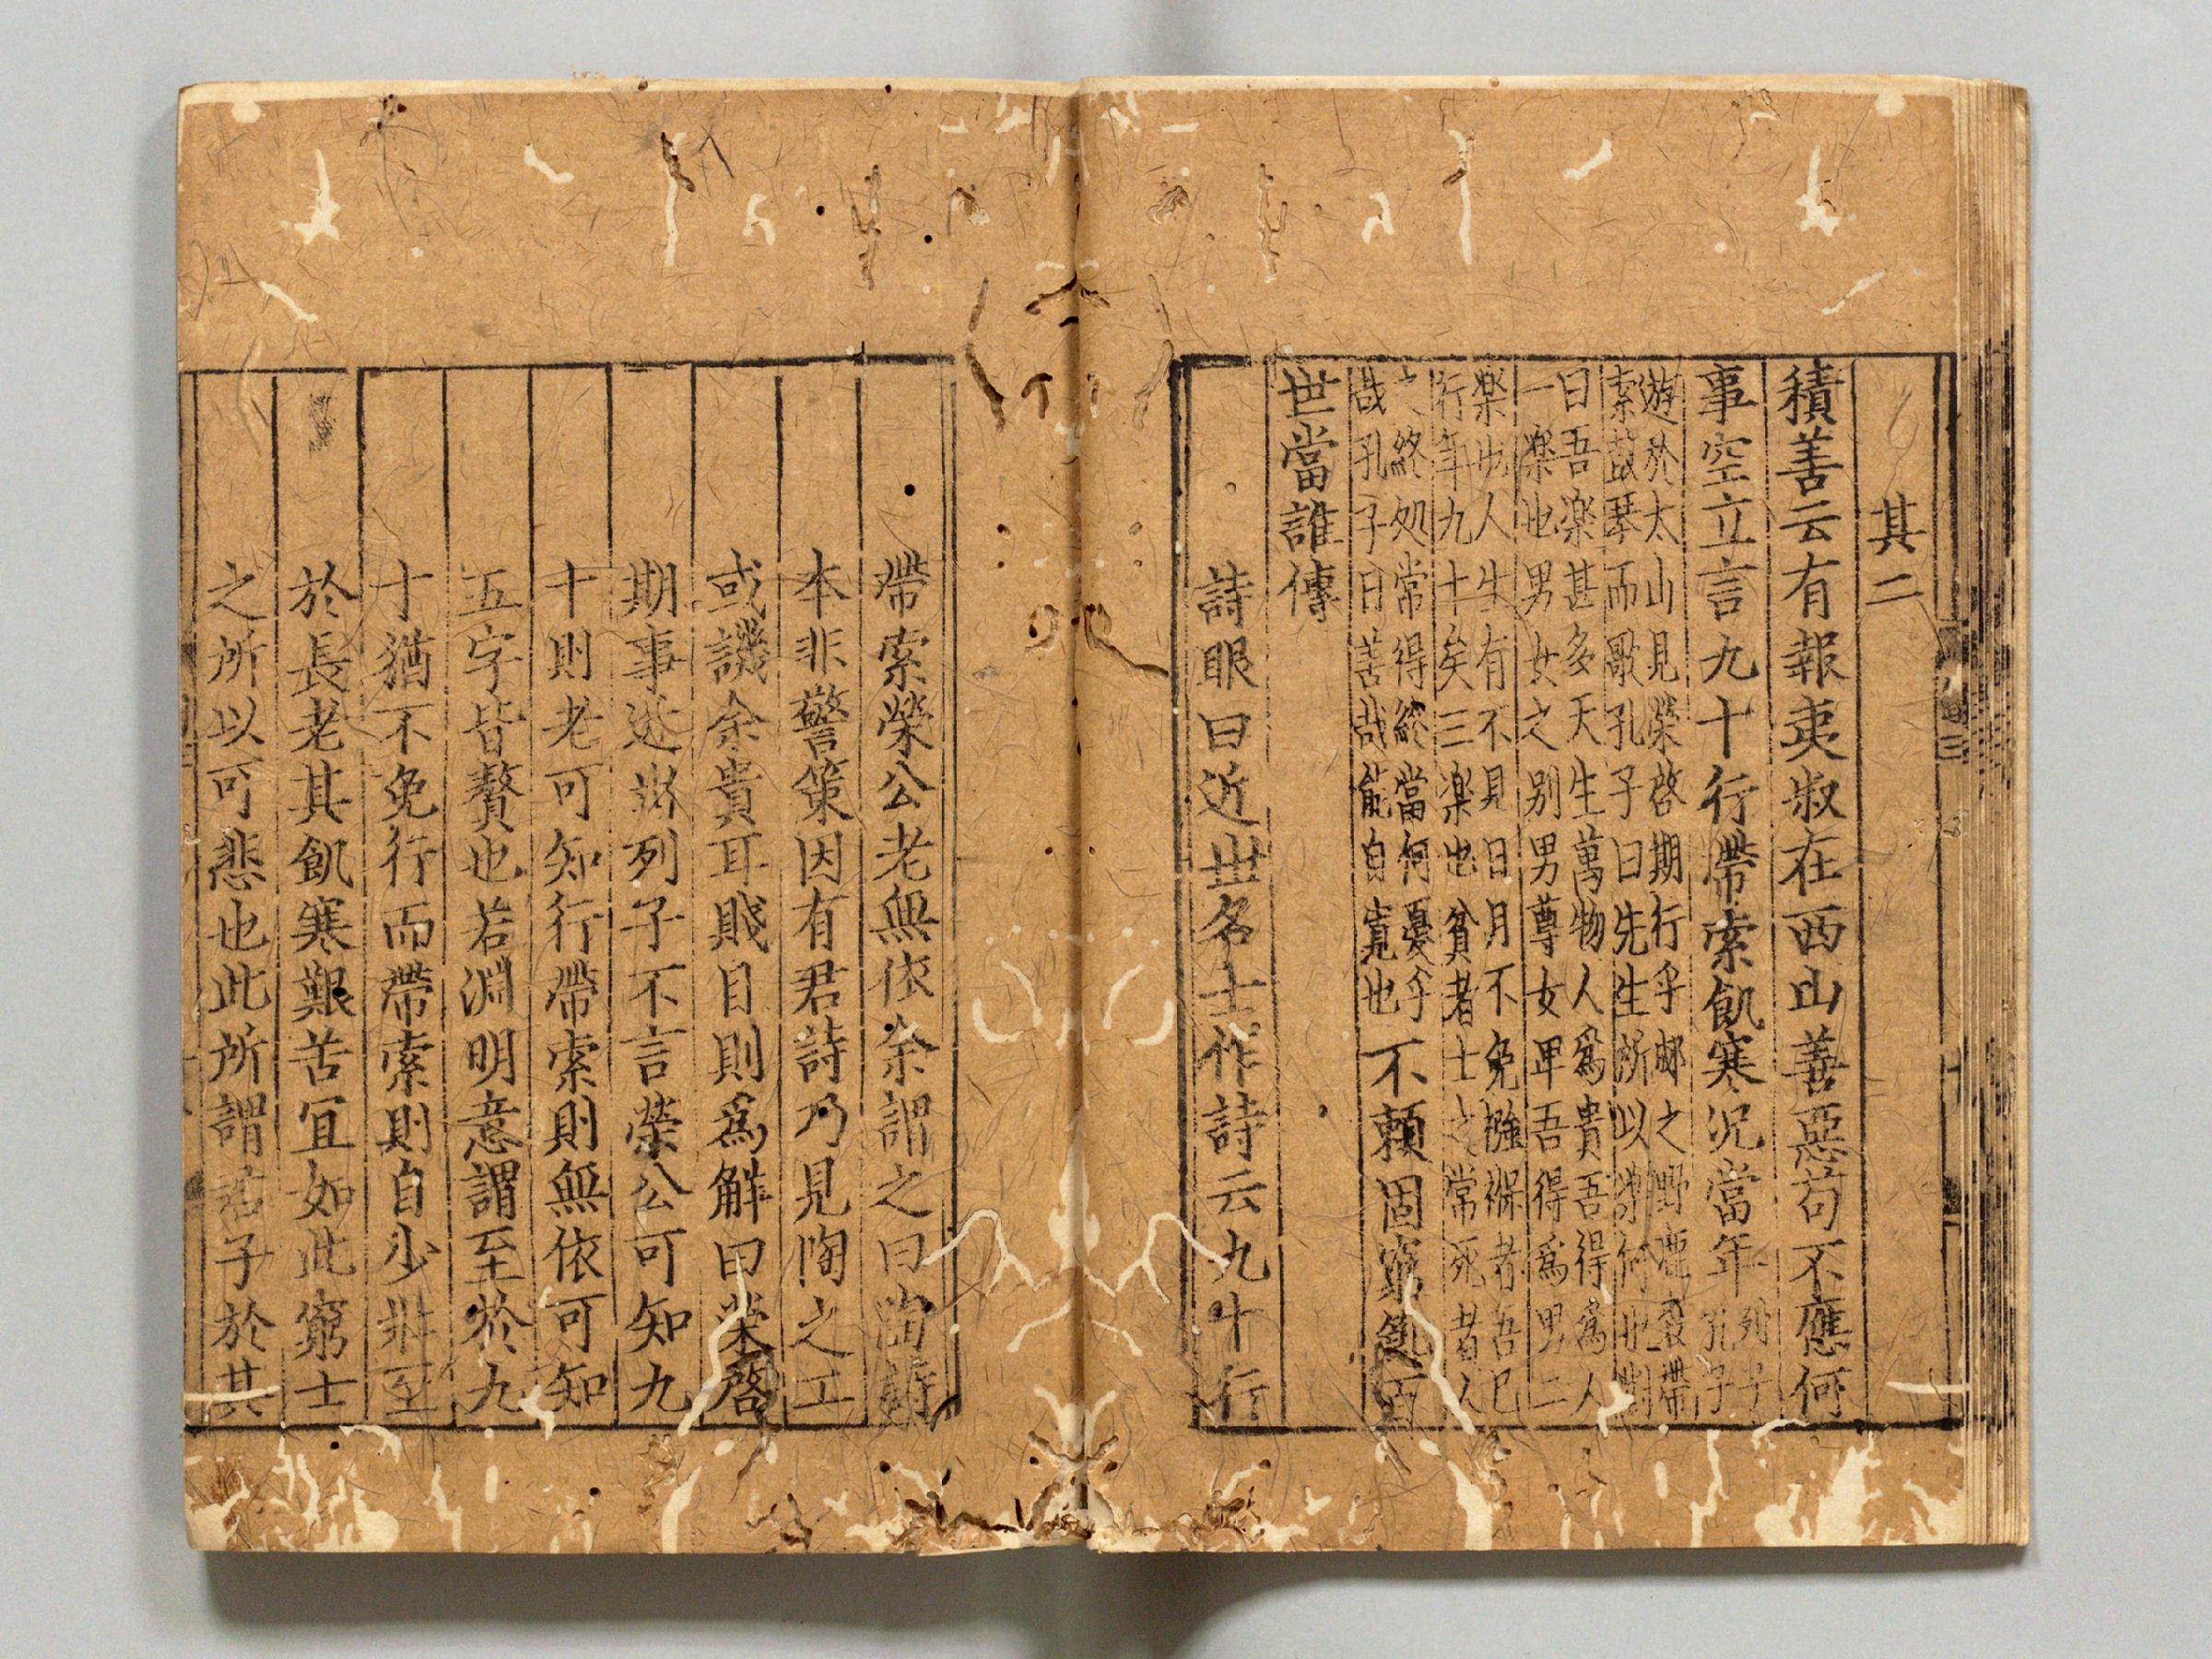 其二
積善云有報夷叔在西山善惡苟不應何
事空立言九十行帶索飢寒况當年
列子
孔子
遊於太山見榮啓期行乎郕之野鹿裘帶
索鼓琴而歌孔子曰先生所以樂何也對
曰吾楽甚多天生萬物人爲貴吾得爲人
一楽也男女之别男尊女卑吾得爲男二
楽也人生有不見日月不免襁褓者吾已
行年九十矣三楽也貧者士之常死者人
之終処常得終當何憂乎
哉孔子曰善哉能自寬也
不賴固窮莭百
世當誰傳
詩眼曰近世名士作詩云九十行
帶索榮公老無依余謂之曰陶詩
本非警策因有君詩乃見陶之工
或譏余貴耳賤目則爲解曰榮啓
期事近出列子不言榮公可知九
十則老可知行帶索則無依可知
五字皆贅也若淵明意謂至於九
十猶不免行而帶索則自少壯至
於長老其飢寒艱苦宜如此窮士
之所以可悲也此所謂君子於其